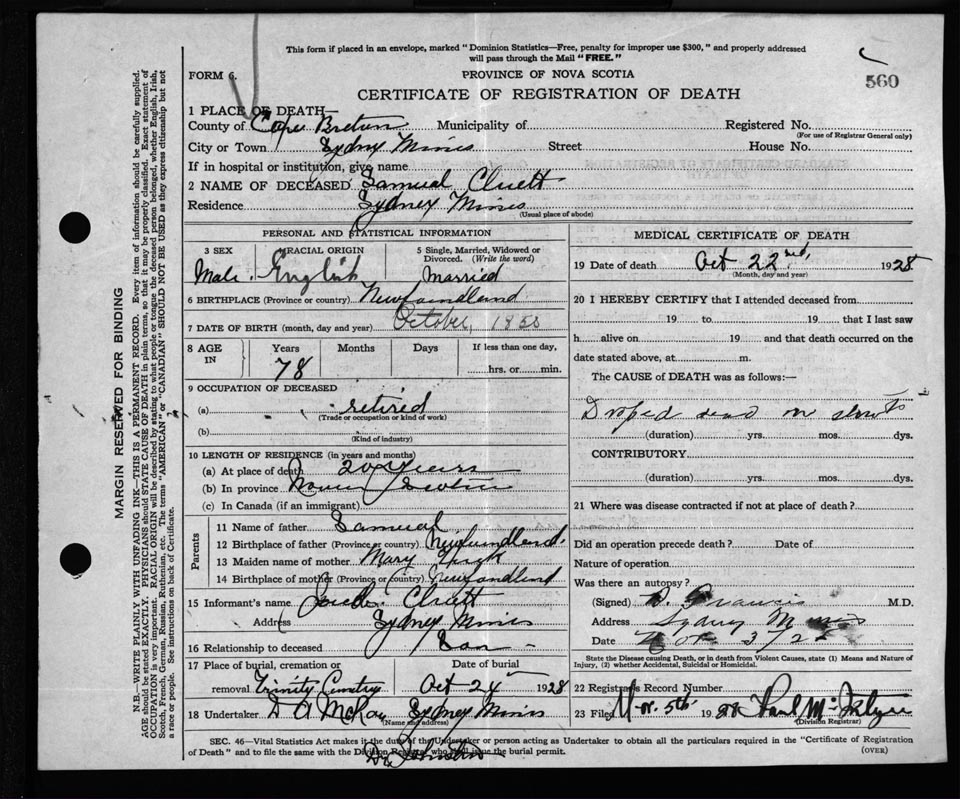 This form if placed in an envelope, marked "Dominion Statistics—Free, penalty for improper use $300," and properly addressed
will pass through the Mail "FREE."
FORM 6.
PROVINCE OF NOVA SCOTIA
560
CERTIFICATE OF REGISTRATION OF DEATH
1 PLACE OF DEATH—
County of Cape Breton Municipality of Registered No.
(For use of Registrar General only)
City or Town Sydney Mines Street House No.
If in hospital or institution, give name
2 NAME OF DECEASED Samual Cluett
Residence Sydney Mines
(Usual place of abode)
PERSONAL AND STATISTICAL INFORMATION
3 SEX 4 RACIAL ORIGIN 5 Single, Married, Widowed or Divorced. (Write the word)
Male. English Married
6 BIRTHPLACE (Province or country) Newfoundland
7 DATE OF BIRTH (month, day and year) October, 1850
8 AGE IN Years Months Days If less than one day,
78 hrs. or min.
9 OCCUPATION OF DECEASED
(a) retired
(Trade or occupation or kind of work)
(b)
(Kind of industry)
10 LENGTH OF RESIDENCE (in years and months)
(a) At place of death 20 years
(b) In province Nova Scotia
(c) In Canada (if an immigrant)
Parents
11 Name of father Samual
12 Birthplace of father (Province or country) Newfoundland.
13 Maiden name of mother Mary
14 Birthplace of mother (Province or country) Newfoundland
15 Informant's name Cluett
Address Sydney Mines
16 Relationship to deceased Son
17 Place of burial, cremation or Date of burial
removal Trinity Cemetry Oct 24 1928
18 Undertaker D A McKay Sydney Mines
(Name and address)
MEDICAL CERTIFICATE OF DEATH
19 Date of death Oct 22nd, 1928
(Month, day and year)
20 I HEREBY CERTIFY that I attended deceased from
19 to 19 that I last saw
h alive on 19 and that death occurred on the
date stated above, at m.
The CAUSE of DEATH was as follows:—
Droped dead on
(duration) yrs. mos. dys.
CONTRIBUTORY
(duration) yrs. mos. dys.
21 Where was disease contracted if not at place of death?
Did an operation precede death? Date of
Nature of operation
Was there an autopsy?
(Signed) Francis M.D.
Address Sydney Mines
Date Nov 3/28
State the Disease causing Death, or in death from Violent Causes, state (1) Means and Nature of
Injury, (2) whether Accidental, Suicidal or Homicidal.
22 Registrar's Record Number
23 Filed Nov. 5th 1928 Paul
(Division Registrar)
SEC. 46—Vital Statistics Act makes it the duty of the Undertaker or person acting as Undertaker to obtain all the particulars required in the "Certificate of Registration
of Death" and to file the same with the Division Registrar who shall issue the burial permit.
(OVER)
Dr Johnston
MARGIN RESERVED FOR BINDING
N.B.—WRITE PLAINLY WITH UNFADING INK—THIS IS A PERMANENT RECORD. Every item of information should be carefully supplied.
AGE should be stated EXACTLY. PHYSICIANS should STATE CAUSE OF DEATH in plain terms, so that it may be properly classified. Exact statement of
OCCUPATION is very important. RACIAL ORIGIN will be described by stating to what people or tongue the deceased person belonged, whether English, Irish,
Scotch, French, German, Russian, Ruthenian, etc. The terms "AMERICAN" or "CANADIAN" SHOULD NOT BE USED as they express citizenship but not
a race or people. See instructions on back of Certificate.